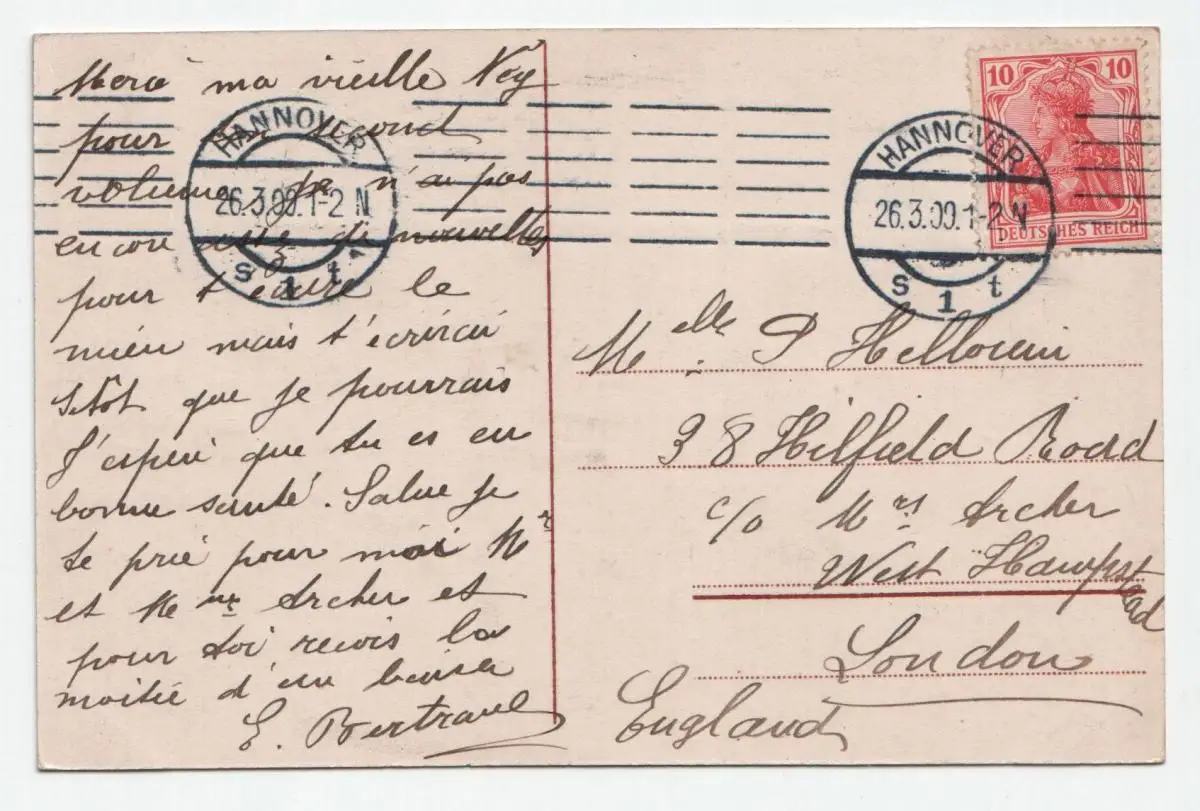 Merci ma vieille Ney
pour second
volume, je n'ai pas
encore assez de nouvelles
pour t'écrire le
mieu mais t'écrirai
sitôt que je pourrais
J'espère que tu es en
bonne santé. Salue je
te prie pour moi Mr
et Mme Archer et
pour toi reçois la
moitié d'un baiser
E. Bertrand
HANNOVER
26.3.09.1-2 N
s 1 t
HANNOVER
26.3.09.1-2 N
s 1 t
10 10
DEUTSCHES REICH
Melle P
38 Hilfield Road
c/o Mrs Archer
West Hampstead
London
England